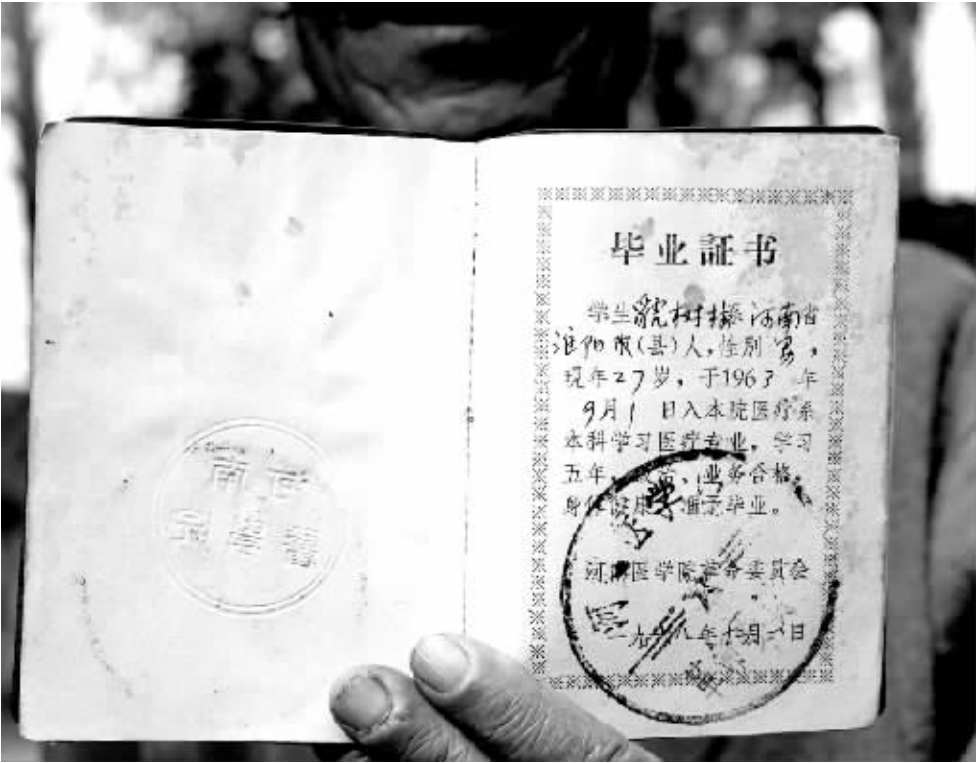 毕业証书
学生树系河南省
淮阳(县)人,性别男,
现年27岁,于1963年
9月1日入本院医疗系
本科学习医疗专业,学习
五年,业务合格,
身体健康准予毕业。
河南医学院革命委员会
一九六八年十月一日